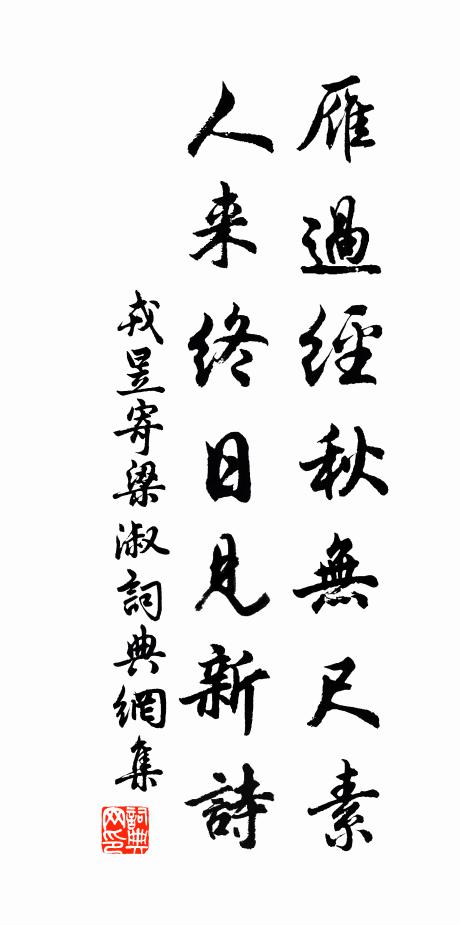 雁過經秋無尺素
人来終日見新詩
戎昱寄梁淑詞典網集
詞典網印